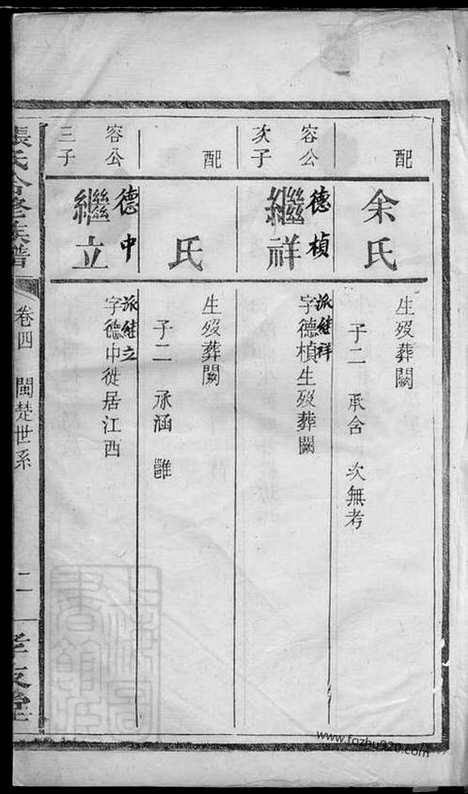 配
余氏
生歿葬闕
子二 承舍 次無考
容公
次子
德楨
繼祥
派繼祥
字德楨生歿葬闕
配
氏
生歿葬闕
子二 承涵
容公
三子
德中
繼立
派繼立
字德中徙居江西
張氏合修族譜
卷四 閩楚世系
二
孝友堂
www.fozhu920.com